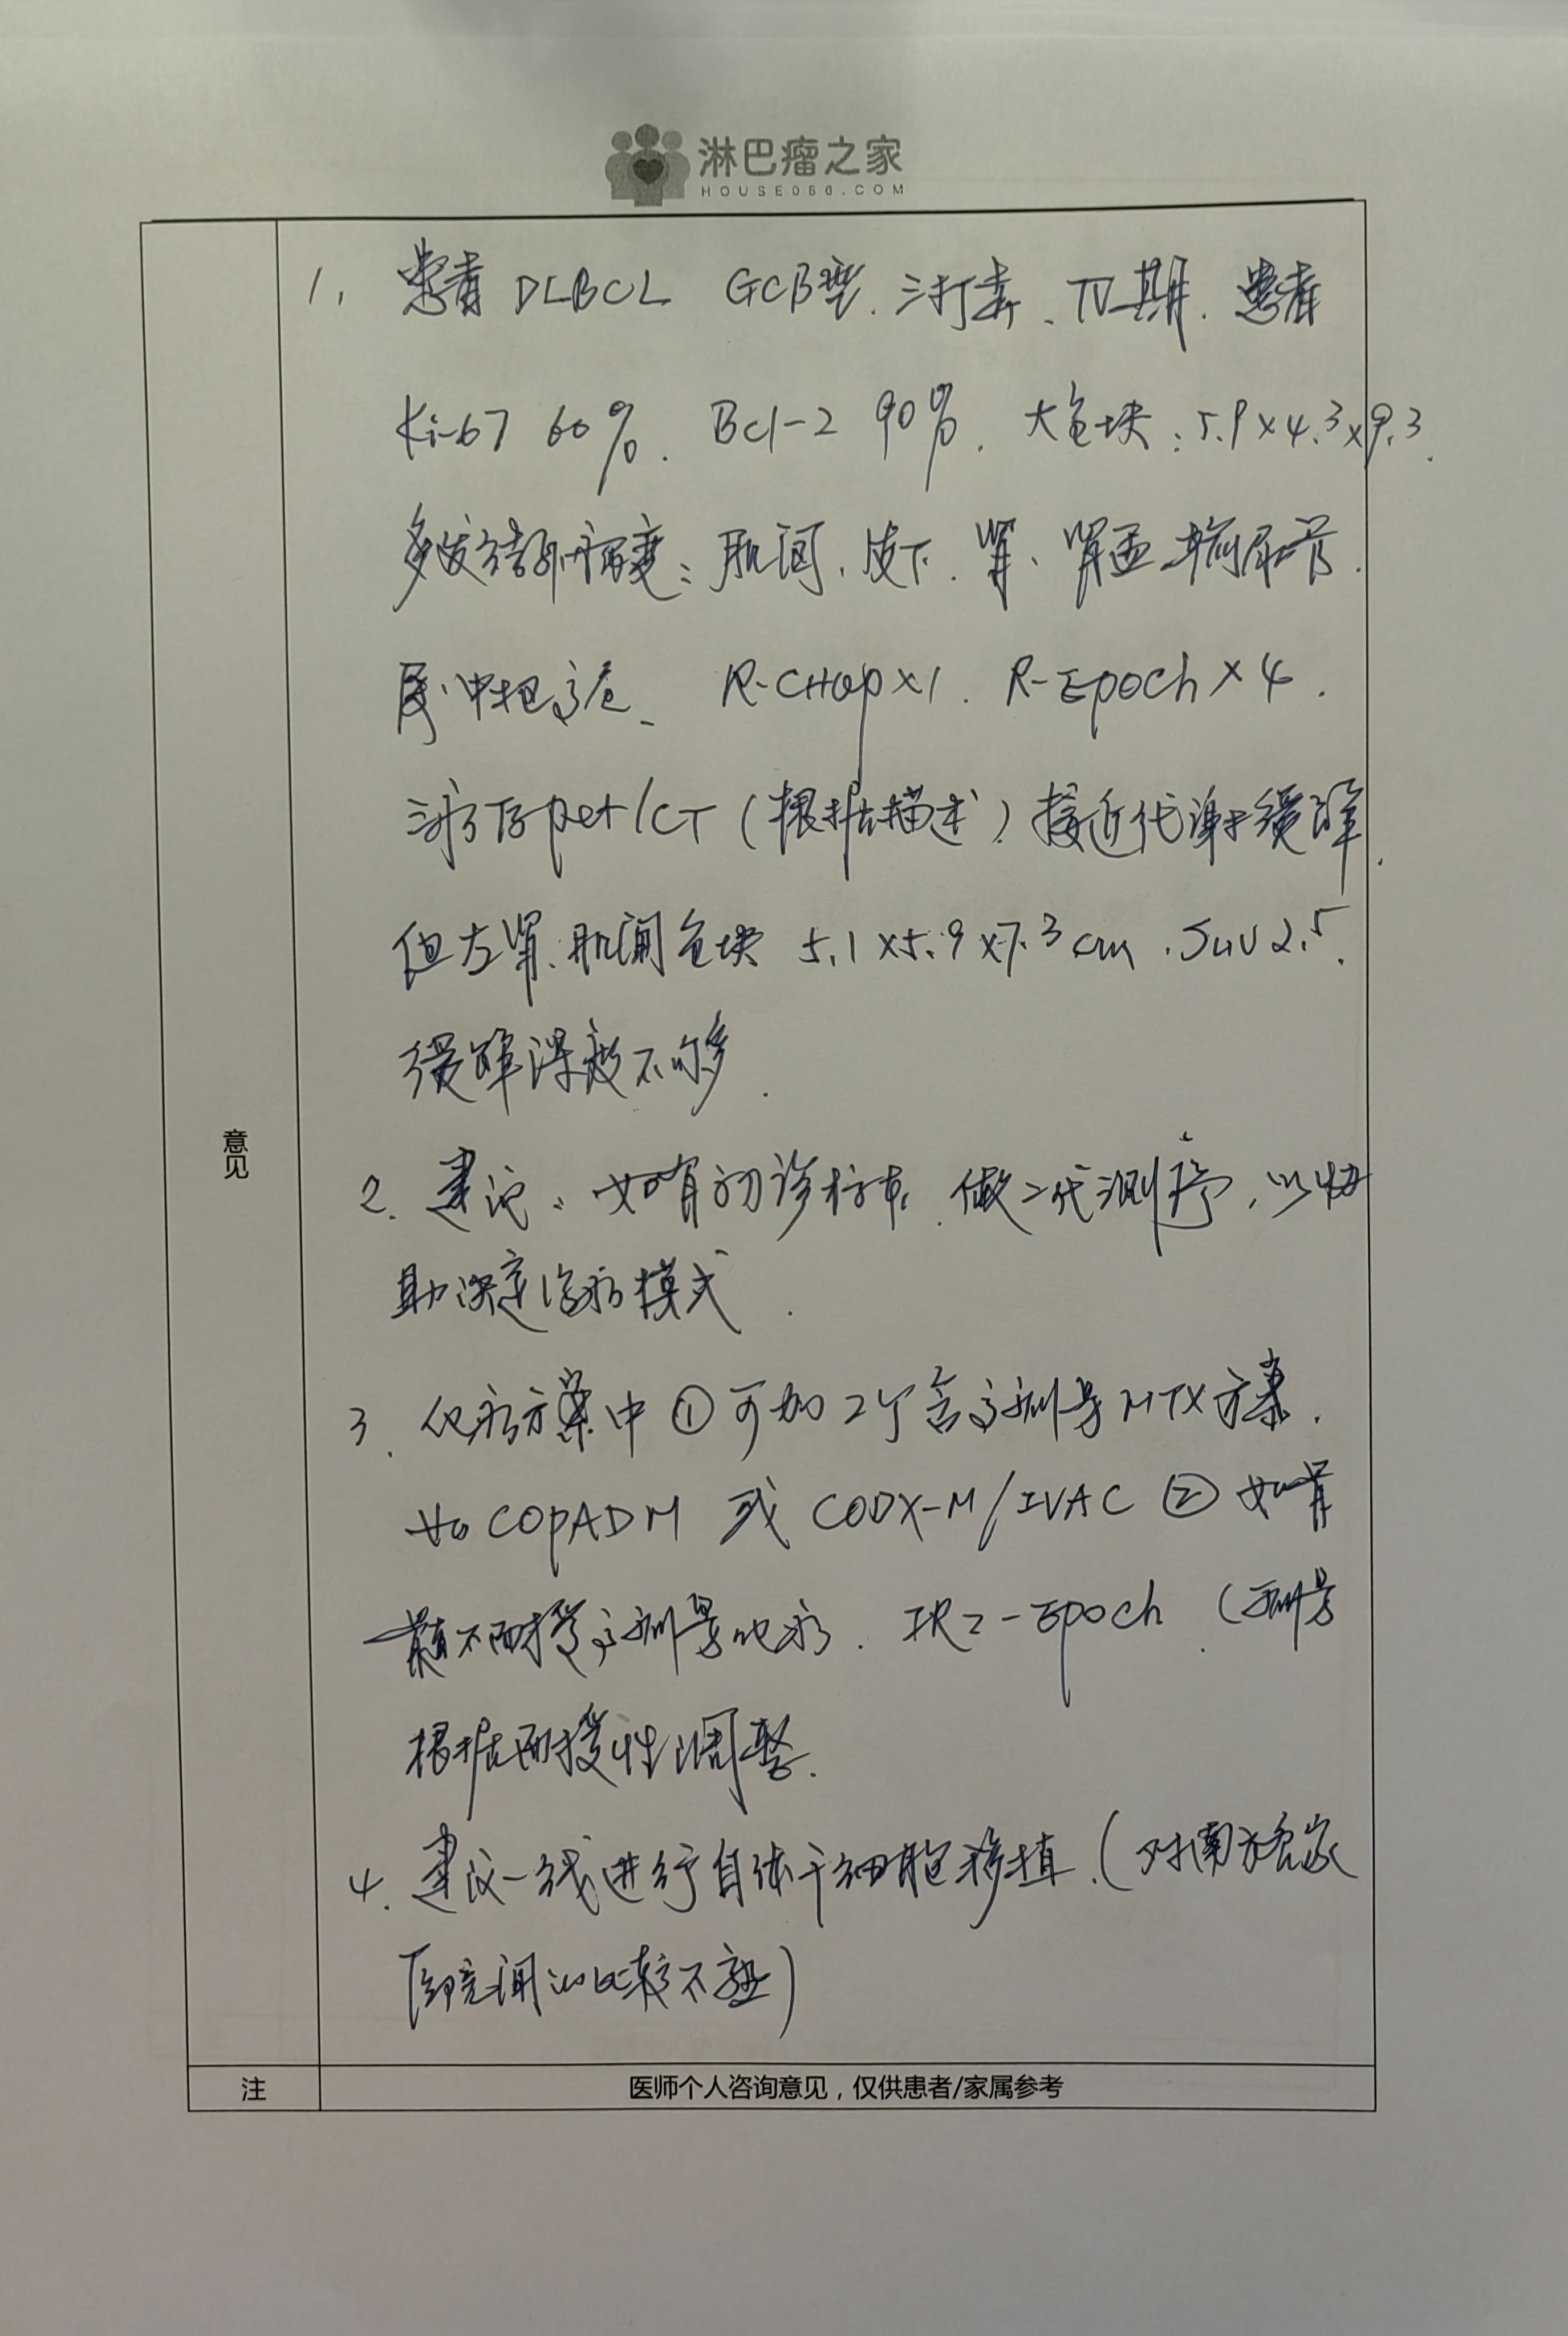 淋巴瘤之家
HOUSE086.COM
意见
1. 患者 DLBCL GCB型. 三打击、IV期. 患者
Ki-67 60%. Bcl-2 90%. 大包块: 5.9×4.3×9.3.
多发结外病变: 肌间、皮下、胃、肾盂输尿管.
属中枢高危、 R-CHOP×1. R-EPOCH×4.
治疗后pet/CT (根据描述) 接近代谢缓解.
但左肾、肌间包块 5.1×5.9×7.3cm. SUV 2.5.
缓解深度不够.
2. 建议: 如有初诊标本. 做二代测序, 以协
助决定治疗模式.
3. 化疗方案中 ①可加2个含高剂量MTX方案.
如COPADM 或 CODX-M/IVAC ②如胃
不耐受高剂量化疗. IR2-EPOCH. (剂量
根据耐受性调整.
4. 建议一线进行自体干细胞移植. (对南方各家
医院间的比较不熟)
注
医师个人咨询意见，仅供患者/家属参考